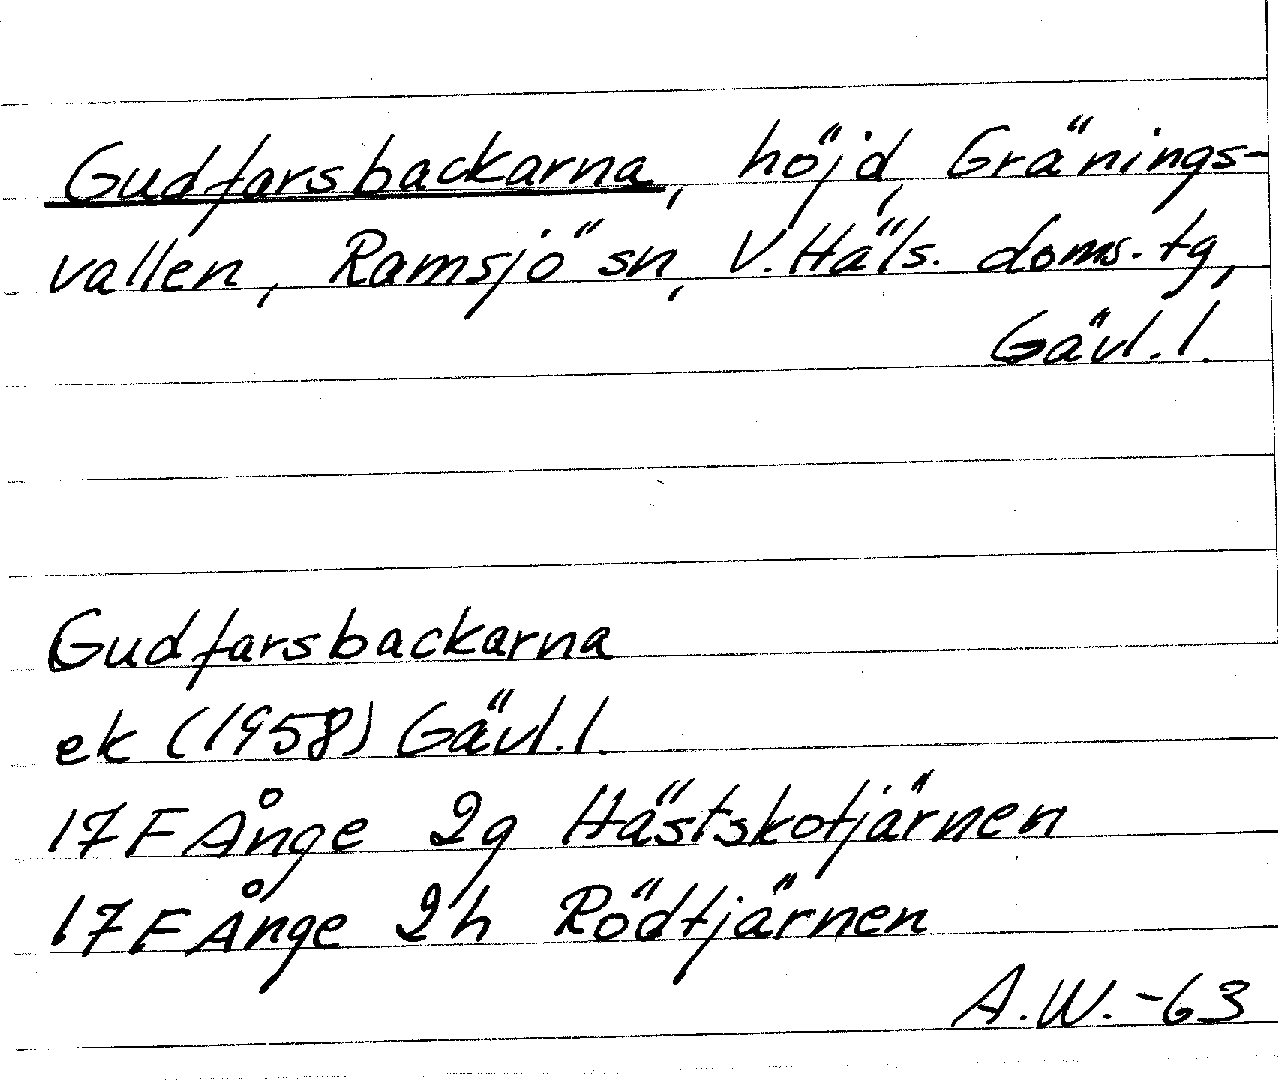 Gudfarsbackarna, höjd, Gränings-
vallen, Ramsjö sn, V. Häls. doms. tg,
Gävl. l.
Gudfarsbackarna
ek (1958) Gävl. l.
17F Ånge 2g Hästskotjärnen
17F Ånge 2h Rödtjärnen
A.W. -63